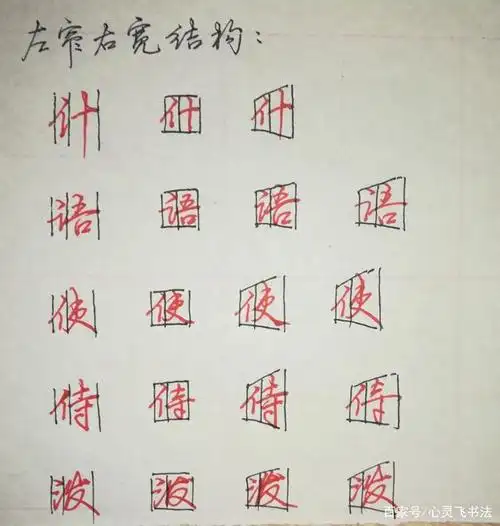 左窄右宽结构：
什 什 什
语 语 语 语
使 使 使 使
侍 侍 侍 侍
波 波 波 波
百家号/心灵飞书法